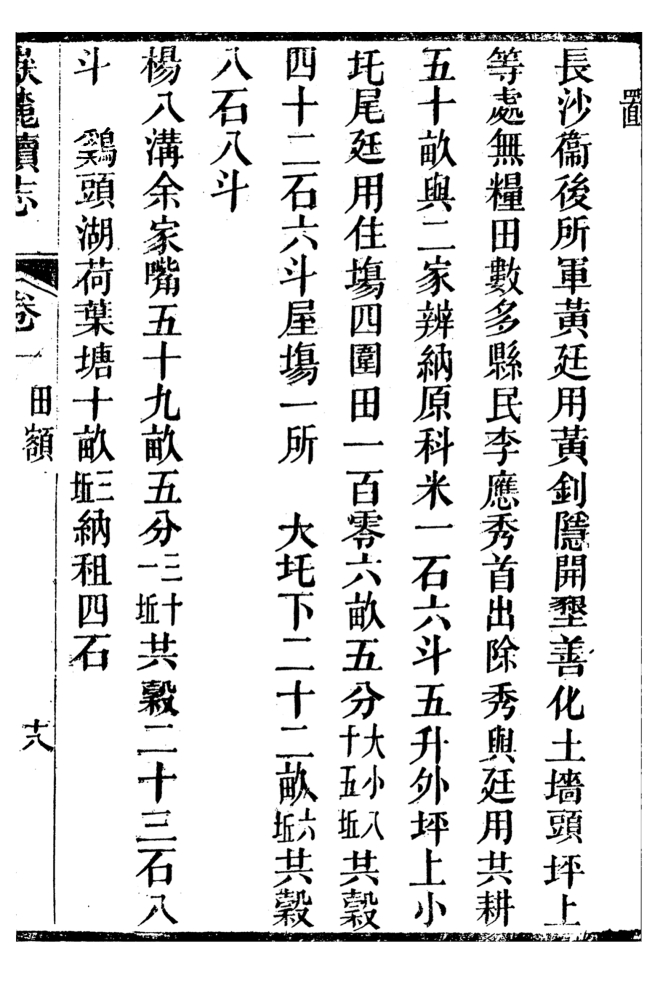 置
長沙衞後所軍黃廷用黃釗隱開墾善化土墻頭坪上
等處無糧田數多縣民李應秀首出除秀與廷用共耕
五十畝與二家辨納原科米一石六斗五升外坪上小
圫尾廷用住塲四圍田一百零六畝五分大小八十五坵共穀
四十二石六斗屋塲一所　大圫下二十二畝六坵共穀
八石八斗
楊八溝余家嘴五十九畝五分三十一坵共穀二十三石八
斗　鷄頭湖荷葉塘十畝三坵納租四石
嶽麓續志　卷一　田額　十八